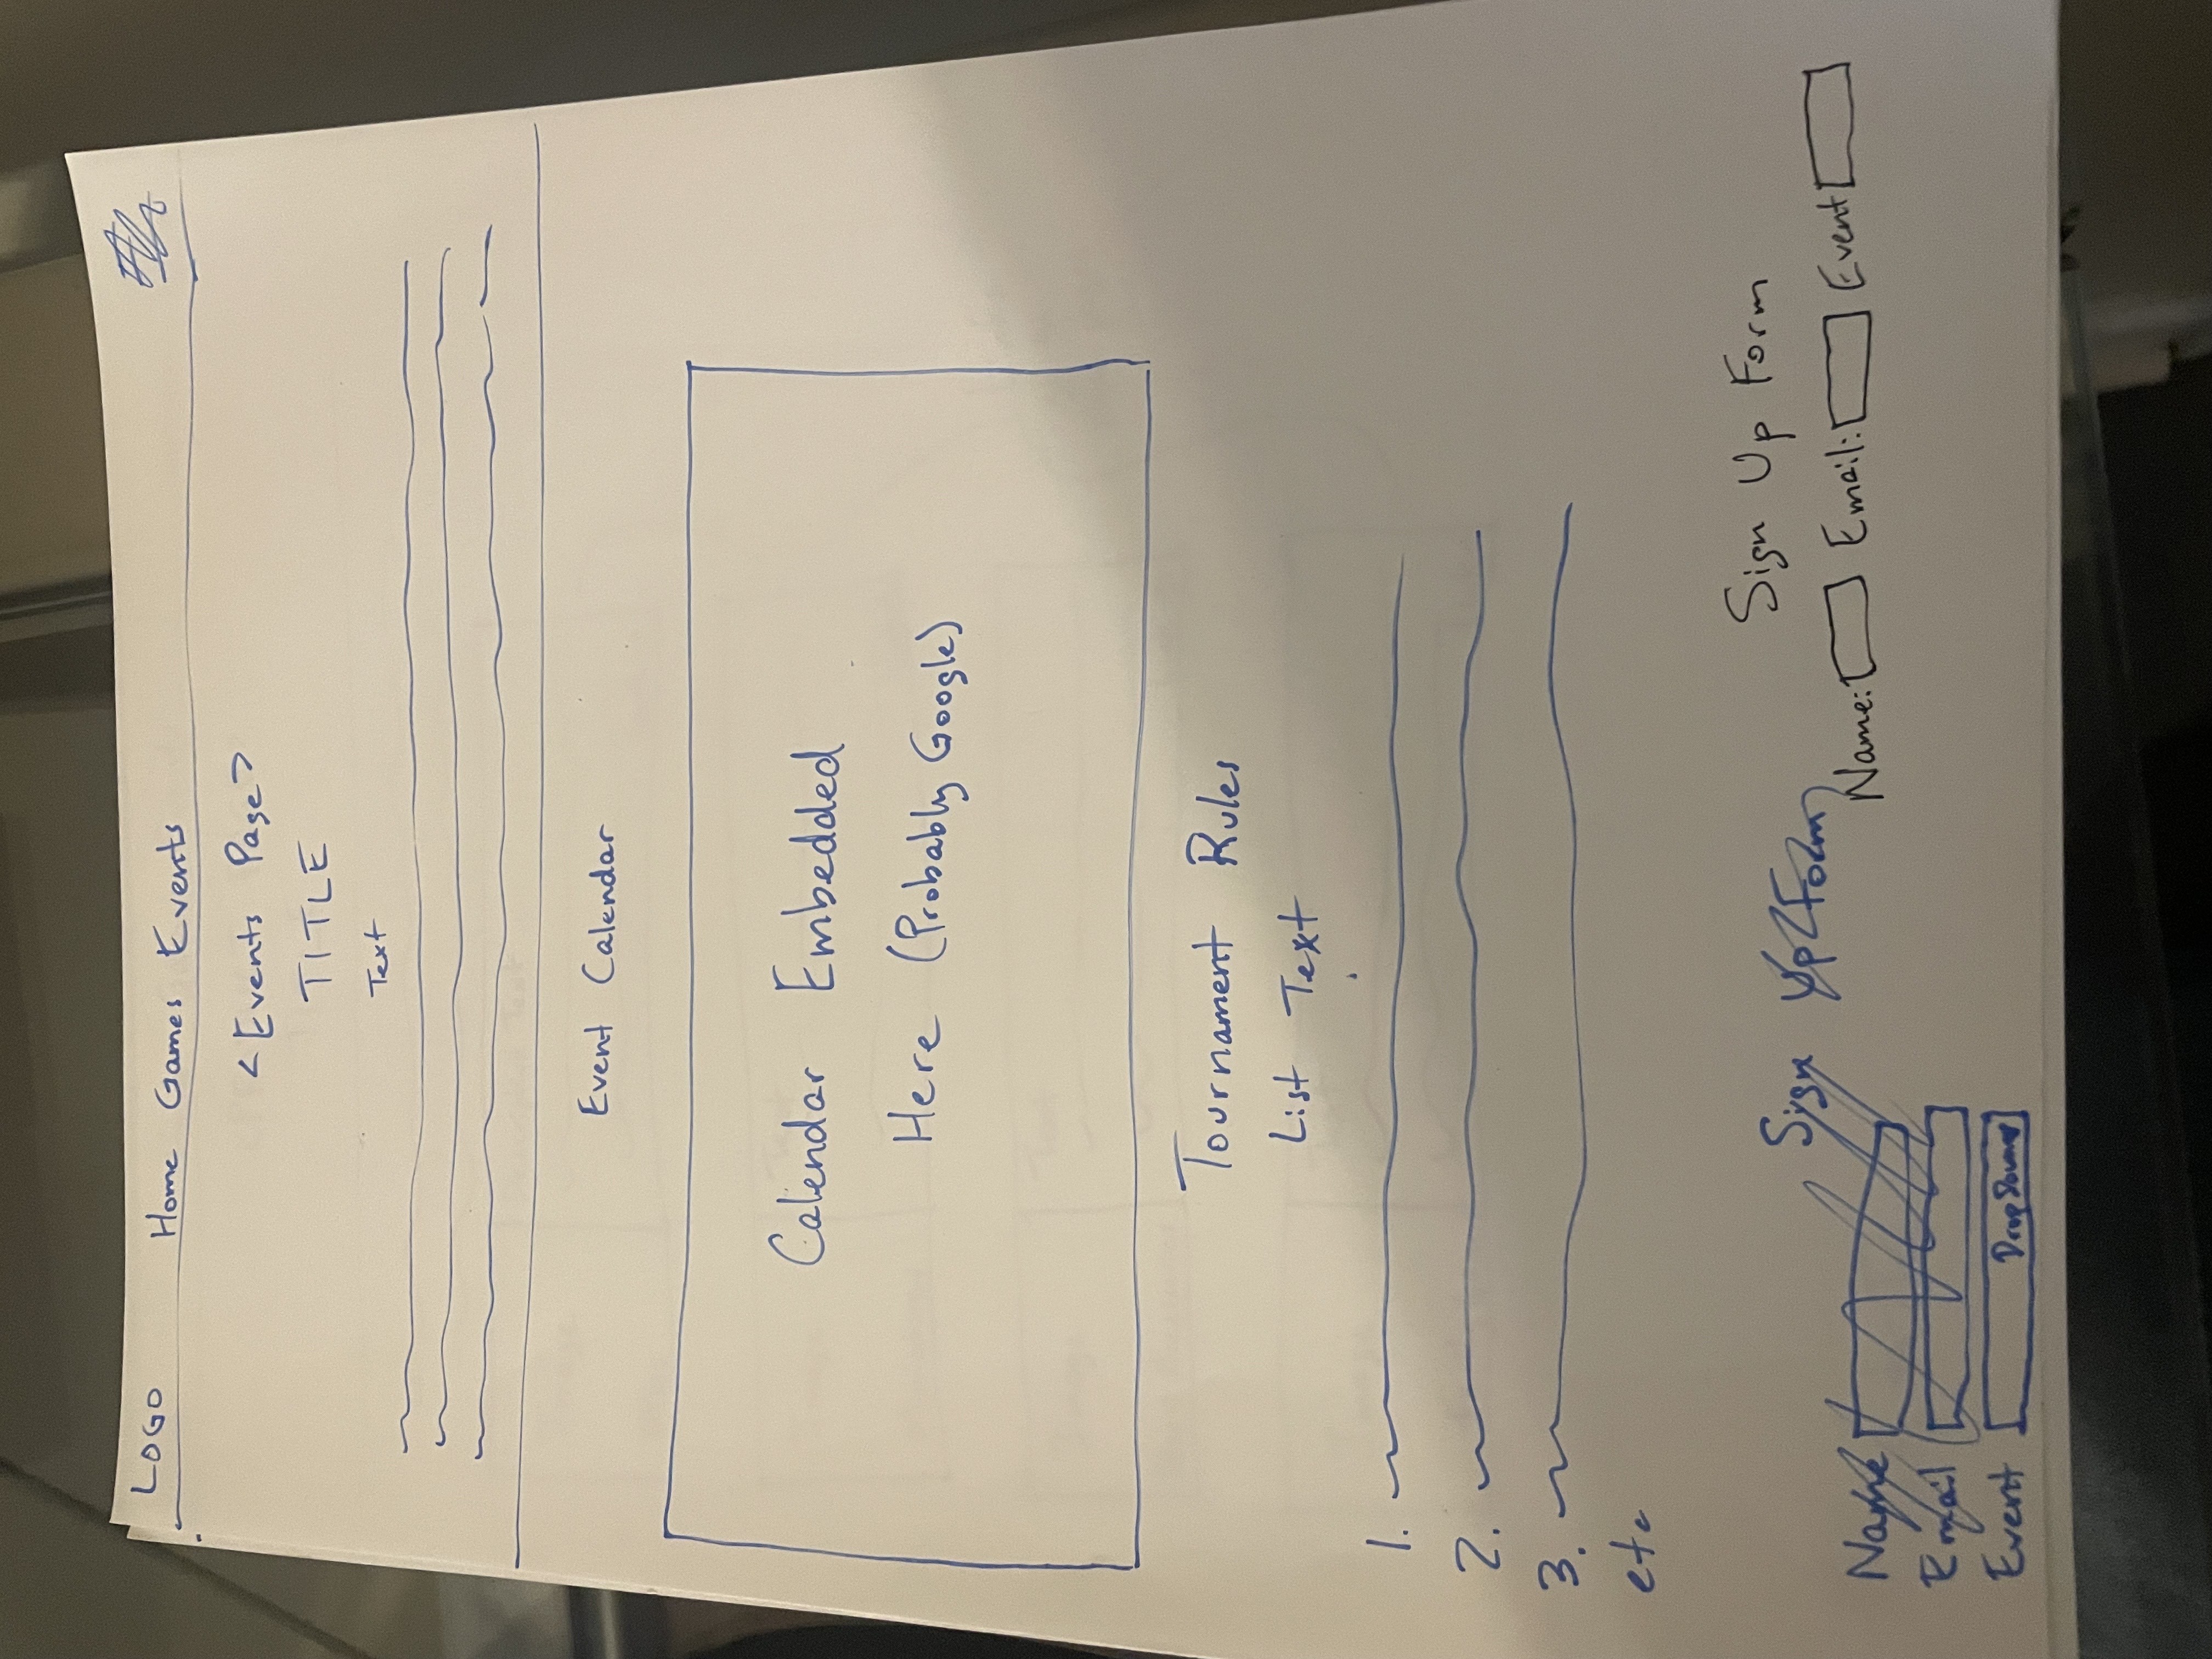 LOGO Home Games Events
<Events Page>
TITLE
Text
Event Calendar
Calendar Embedded
Here (Probably Google)
Tournament Rules
List Text
1.
2.
3.
etc
Sign Up Form
Name: Email: Event
Sign Up Form
Name
Email
Event Dropdown